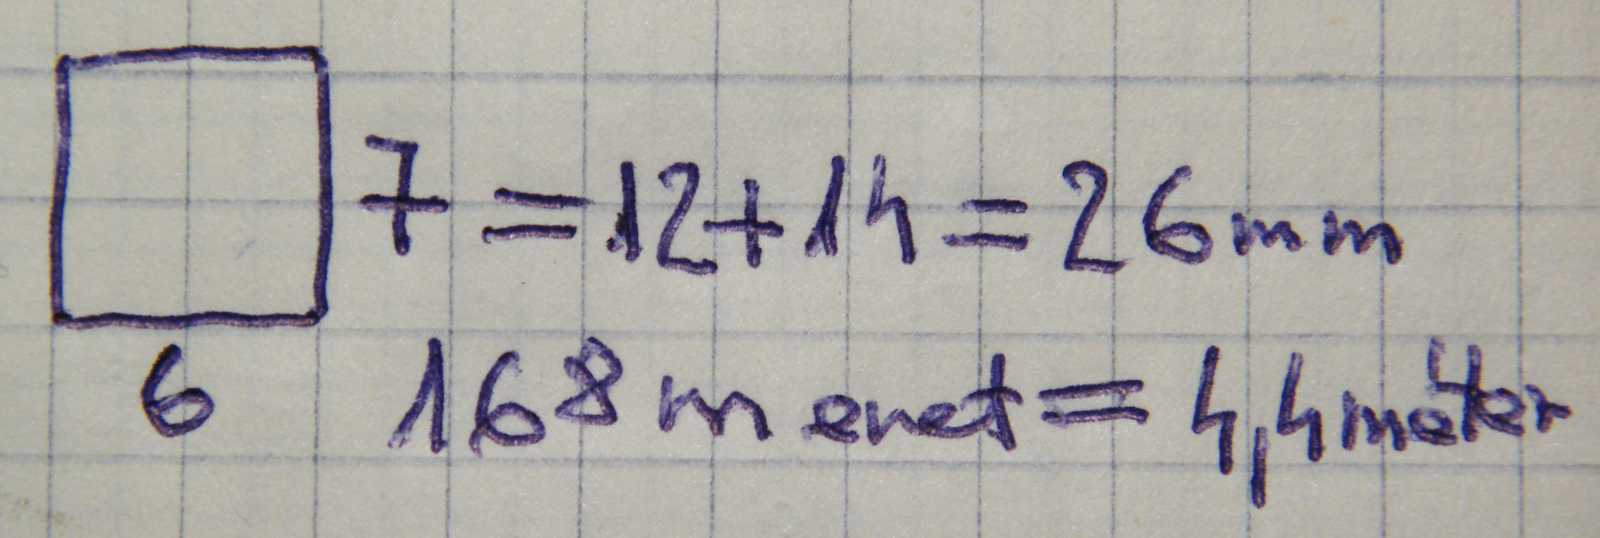 7 = 12+14 = 26mm
6 168 menet = 4,4 méter